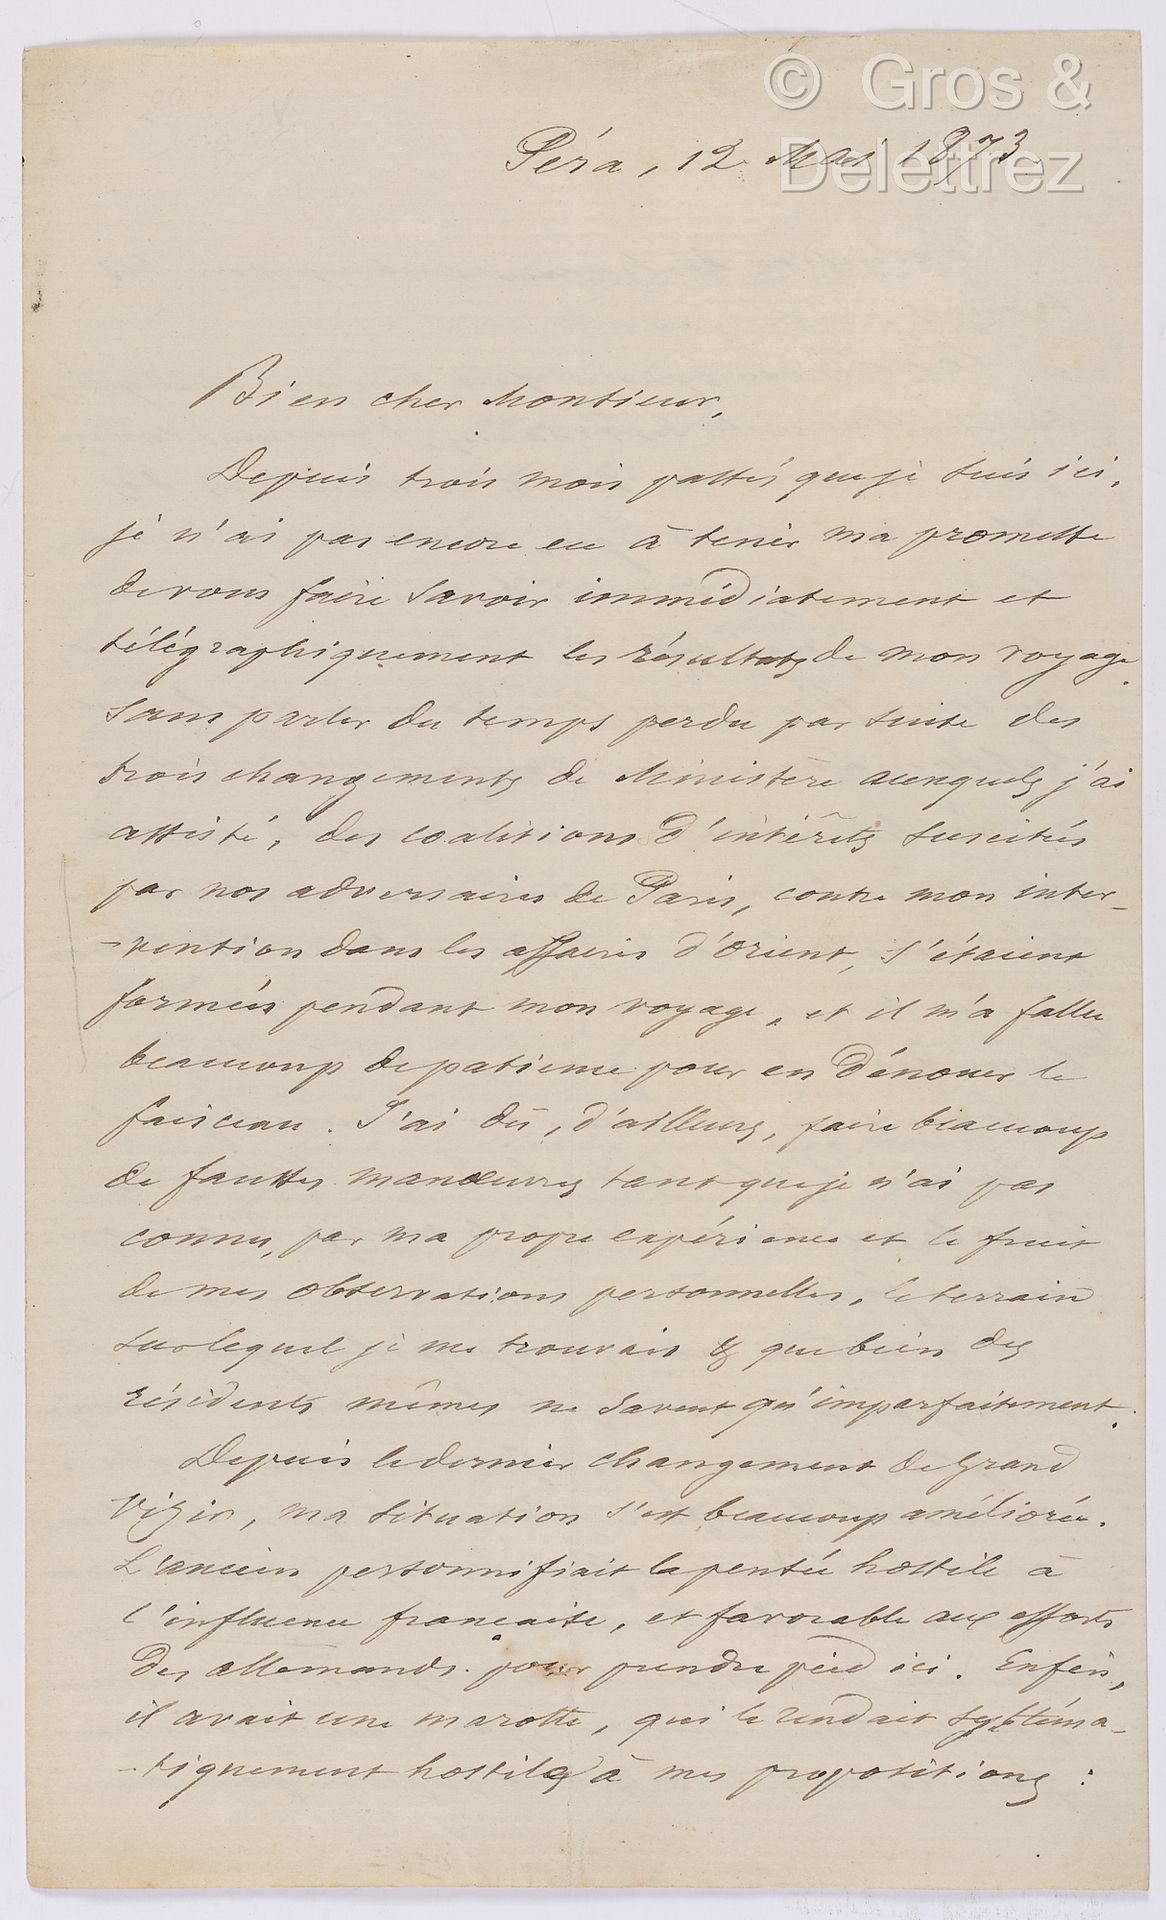 © Gros &
Delettrez
Péra, 12 Mai 1873.
Bien cher Monsieur,
Depuis trois mois passés que je suis ici,
je n'ai pas encore eu à tenir ma promesse
de vous faire savoir immédiatement et
télégraphiquement les résultats de mon voyage.
Sans parler du temps perdu par suite des
trois changements de Ministère auxquels j'ai
assisté, des coalitions d'intérêts suscités
par nos adversaires de Paris, contre mon inter-
-vention dans les affaires d'Orient, s'étaient
formées pendant mon voyage, et il m'a fallu
beaucoup de patience pour en dénouer le
faisceau. J'ai dû, d'ailleurs, faire beaucoup
de fausses manœuvres tant que je n'ai pas
connu, par ma propre expérience et le fruit
de mes observations personnelles, le terrain
sur lequel je me trouvais & que bien des
résidents mêmes ne savent qu'imparfaitement.
Depuis le dernier changement de Grand
Vizir, ma situation s'est beaucoup améliorée.
L'ancien personnifiait la pensée hostile à
l'influence française, et favorable aux efforts
des allemands pour prendre pied ici. Enfin,
il avait une marotte, qui le rendait systéma-
-tiquement hostile à mes propositions :